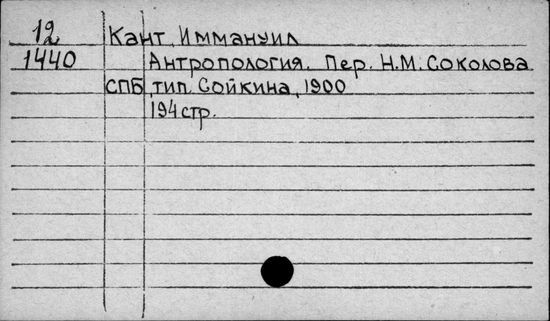 12 Кант, Иммануил
1440 Антропология. Пер. Н.М. Соколова
СПБ, тип. Сойкина, 1900
194 стр.